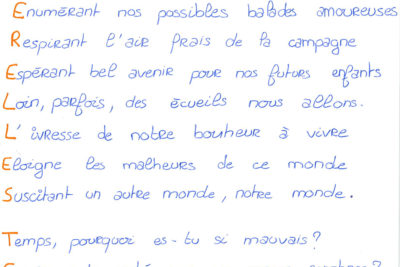 Enumérant nos possibles balades amoureuses
Respirant l'air frais de la campagne
Espérant bel avenir pour nos futurs enfants
Loin, parfois, des écueils nous allons.
L'ivresse de notre bonheur à vivre
Eloigne les malheurs de ce monde
Suscitant un autre monde, notre monde.
Temps, pourquoi es-tu si mauvais?